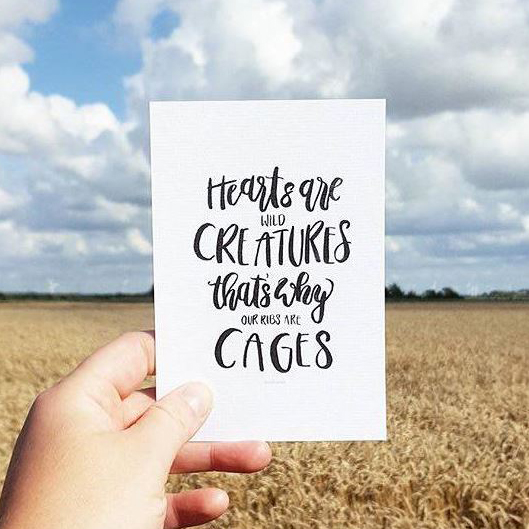 Hearts are
WILD
CREATURES
that's why
OUR RIBS ARE
CAGES